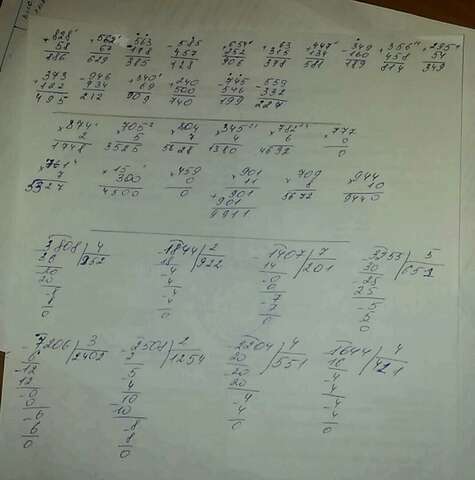 +828 +562 -563 -585 +654 +63 +447 -349 +356 +295
58 67 178 457 252 315 134 160 458 54
886 629 385 128 906 378 581 189 814 349
+373 -946 +840 +240 -745 -559
122 734 69 500 546 332
495 212 909 740 199 227
×874 ×705 ×804 ×345 ×782 ×777
2 5 7 4 6 0
1748 3525 5628 1380 4692 0
×761 ×15 ×459 ×901 ×709 ×944
7 300 0 11 8 10
5327 4500 0 +901 5672 9440
901
9911
3808 4 -1844 2 -1407 7 -3253 5
952 18 922 14 201 30 651
20 -4 -0 -25
20 4 0 25
8 -4 -7 -5
8 4 7 5
0 0 0 0
-7206 3 -2508 2 -2204 4 -1644 4
6 2402 2 1254 20 551 16 421
-12 -5 20 -4
12 4 20 4
-0 -10 -4 -4
0 10 4 4
-6 -8 0 0
6 8
0 0